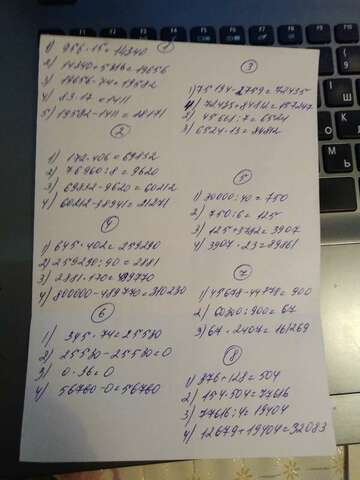 1
1) 956·15=14340
2) 14340+5316=19656
3) 19656-74=19582
4) 83·17=1411
5) 19582-1411=18171
3
1) 75194-2759=72435
4) 72435+84812=157247
2) 45668:7=6524
3) 6524·13=84812
2
1) 172·406=69832
2) 76960:8=9620
3) 69832-9620=60212
4) 60212-38941=21271
5
1) 30000:40=750
2) 750:6=125
3) 125+3782=3907
4) 3907·23=89861
4
1) 645·402=259290
2) 259290:90=2881
3) 2881·170=489770
4) 800000-489770=310230
7
1) 45678-44778=900
2) 60300:900=67
3) 67·2407=161269
6
1) 345·74=25530
2) 25530-25530=0
3) 0·36=0
4) 56760-0=56760
8
1) 376+128=504
2) 154·504=77616
3) 77616:4=19404
4) 12679+19404=32083